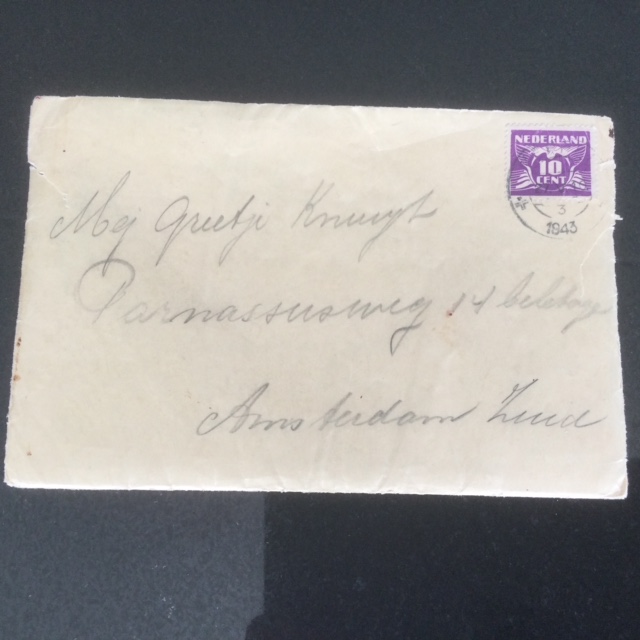 NEDERLAND
10
CENT
3
1943
Mej Greetje
Parnassusweg 14
Amsterdam Zuid